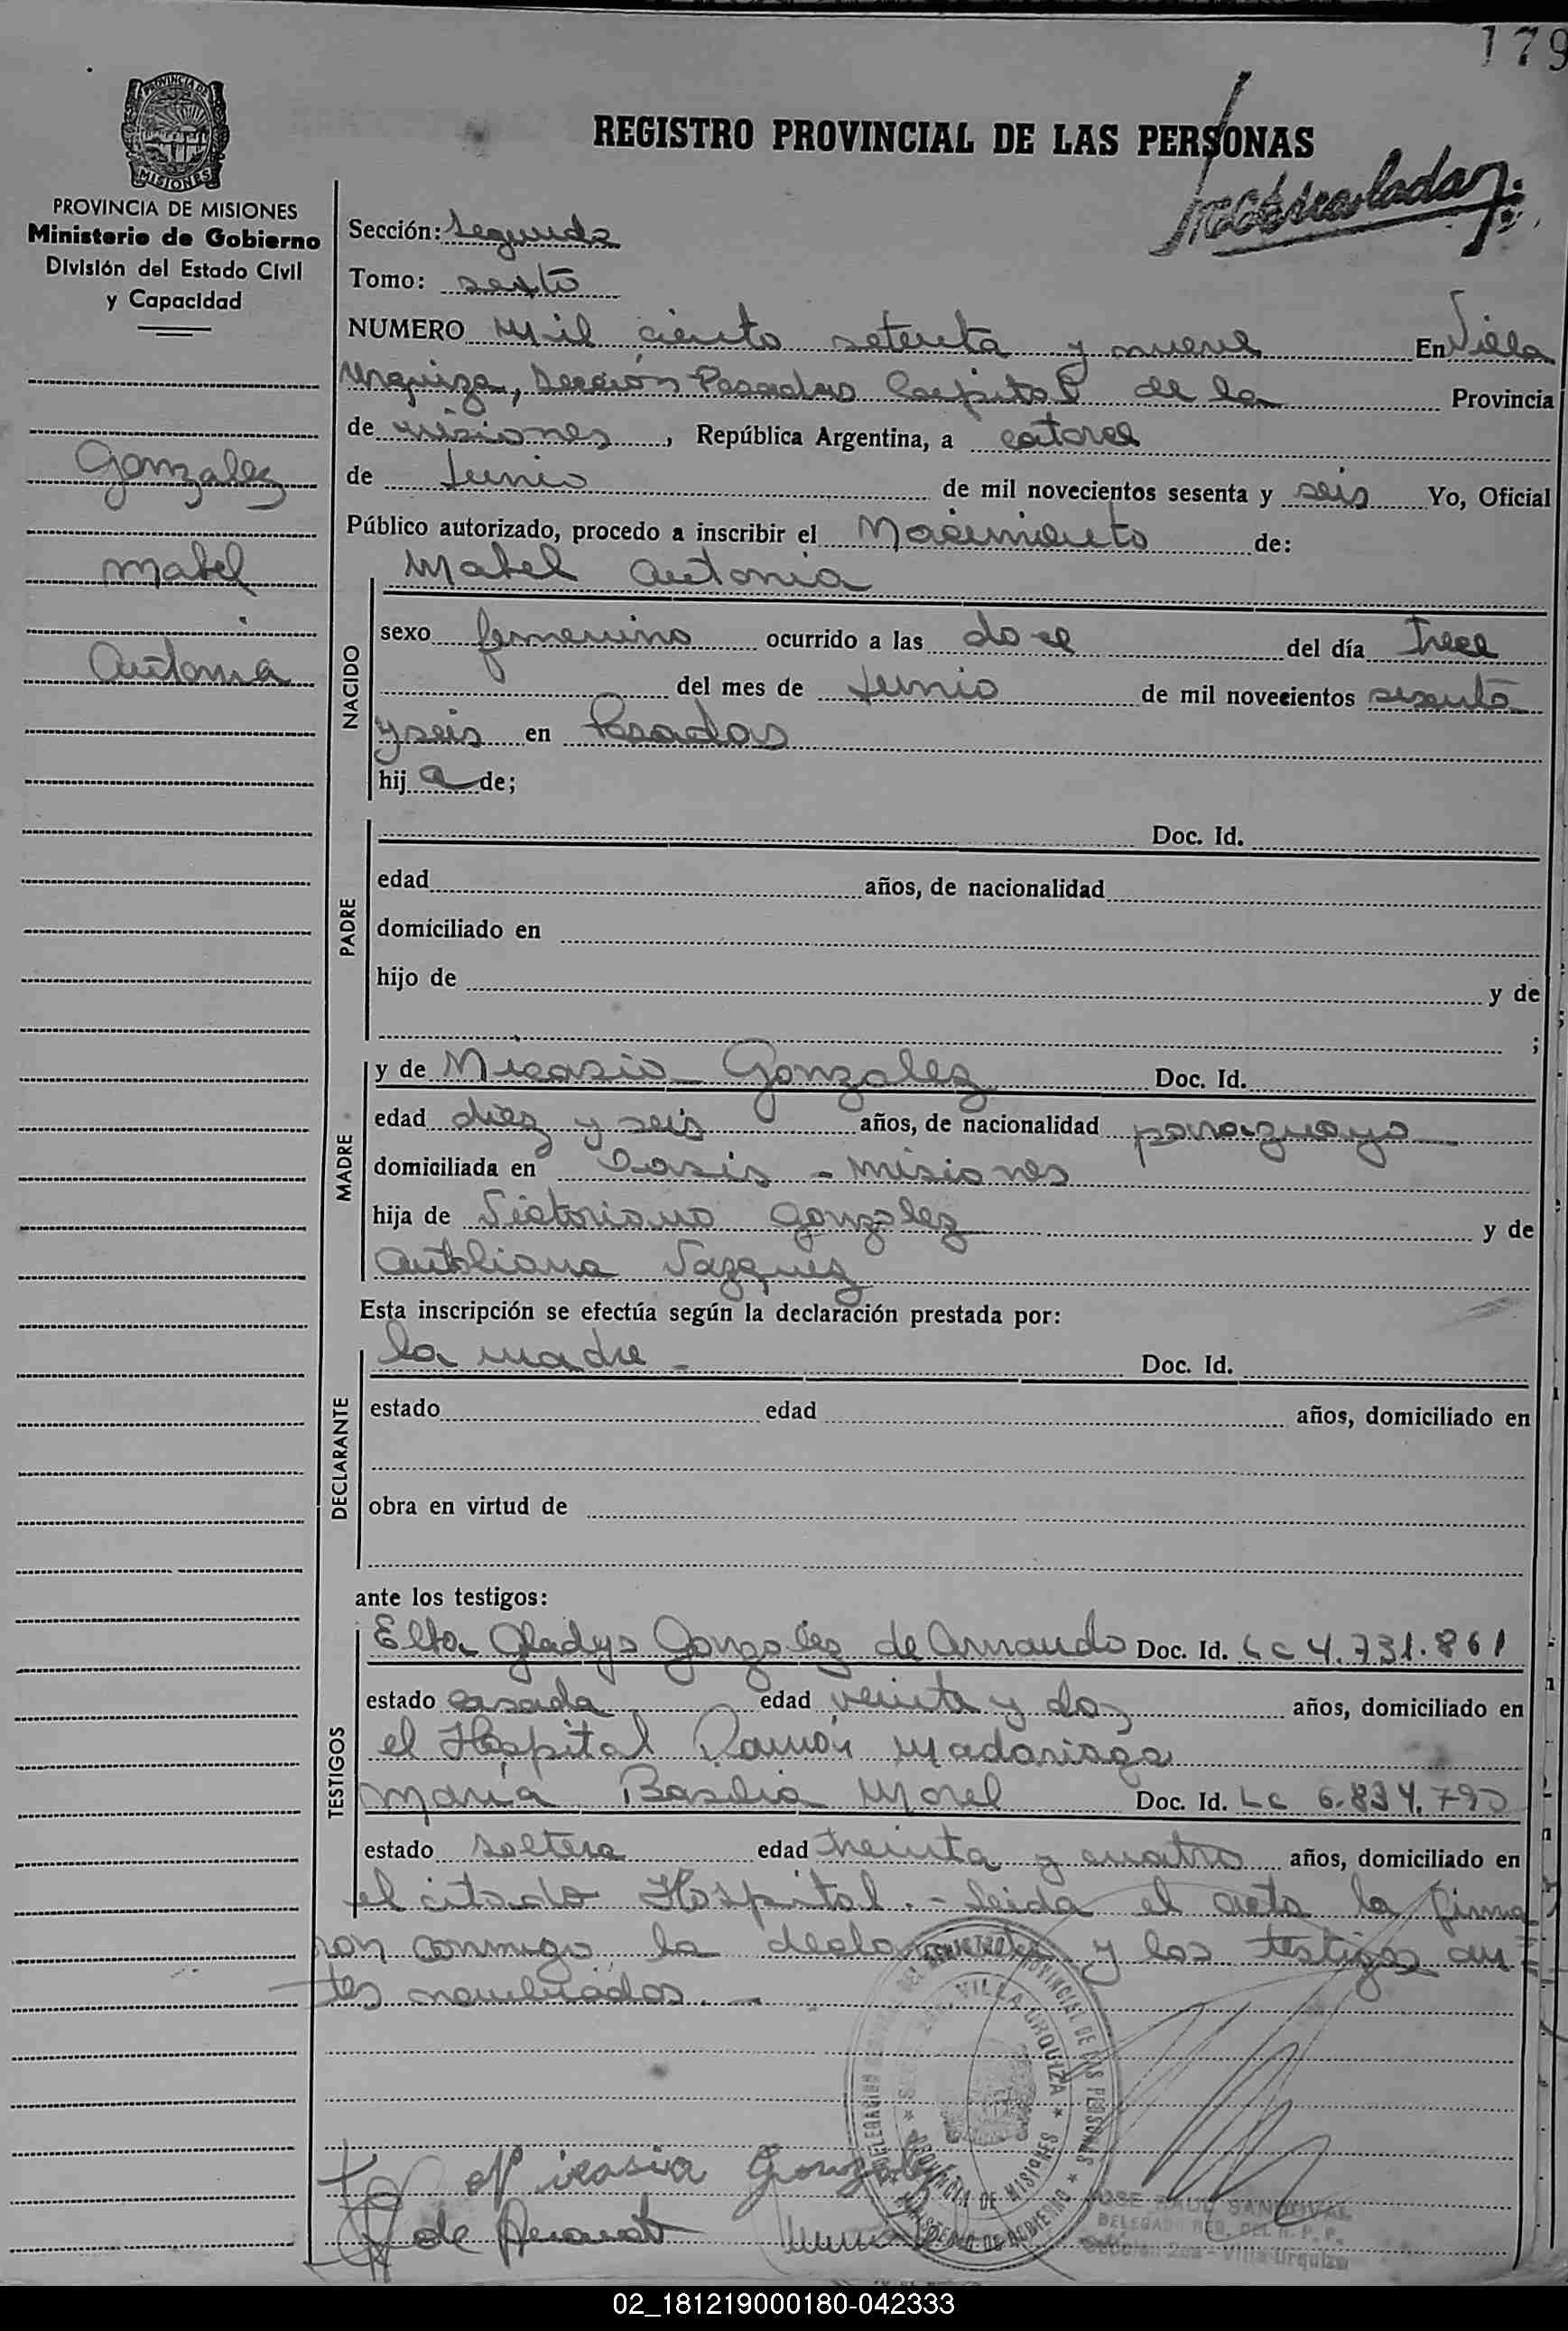 179
PROVINCIA DE
MISIONES
REGISTRO PROVINCIAL DE LAS PERSONAS
PROVINCIA DE MISIONES
Ministerio de Gobierno
División del Estado Civil
y Capacidad
Gonzalez
Mabel
Antonia
Sección: Segunda
Tomo: sexto
NUMERO Mil ciento setenta y nueve En Villa
Urquiza, Sección Posadas Capital de la Provincia
de misiones, República Argentina, a catorce
de Junio de mil novecientos sesenta y seis Yo, Oficial
Público autorizado, procedo a inscribir el Nacimiento de:
Mabel Antonia
NACIDO
sexo femenino ocurrido a las doce del día trece
del mes de Junio de mil novecientos sesenta
y seis en Posadas
hij a de;
PADRE
Doc. Id.
edad años, de nacionalidad
domiciliado en
hijo de y de
;
MADRE
y de Nicasia Gonzalez Doc. Id.
edad diez y seis años, de nacionalidad paraguaya
domiciliada en Oasis - Misiones
hija de Victoriano Gonzalez y de
Vazquez
Esta inscripción se efectúa según la declaración prestada por:
DECLARANTE
la madre - Doc. Id.
estado edad años, domiciliado en
obra en virtud de
ante los testigos:
TESTIGOS
Elba Gladys Gonzalez de Doc. Id. LC 4.731.861
estado casada edad veinte y dos años, domiciliado en
el Hospital Ramón Madariaga
María Basilia Morel Doc. Id. LC 6.834.790
estado soltera edad treinta y cuatro años, domiciliado en
el citado Hospital. - leida el acta la firma
ron conmigo la declarante y los testigos an
tes nombrados. -
VILLA URQUIZA
PROVINCIA DE MISIONES
MINISTERIO DE GOBIERNO
Nicasia Gonzalez
JOSE RAUL SANDOVAL
DELEGADO REG. DEL R. P. P.
Sección 2da - Villa Urquiza
02_181219000180-042333